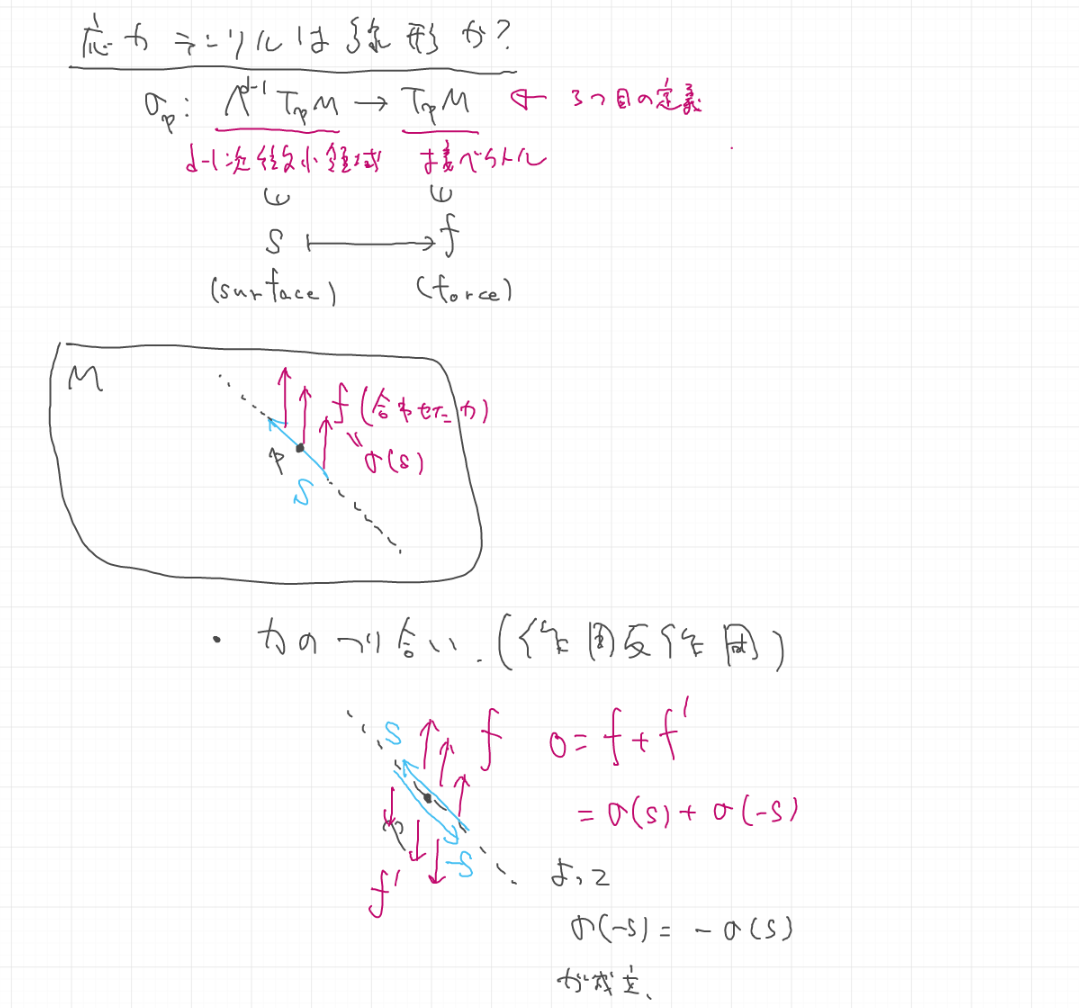 応力テンソルは線形か?
σ_p: Λ^{d-1} T_pM → T_pM ← 3つ目の定義
d-1次微小領域 接ベクトル
∈ ∈
S ↦ f
(surface) (force)
M
f(合わせた力)
=
p σ(s)
S
・力のつり合い.(作用反作用)
S f 0=f+f'
=σ(s)+σ(-s)
p
-S
f' よって
σ(-s)= -σ(s)
が成立、